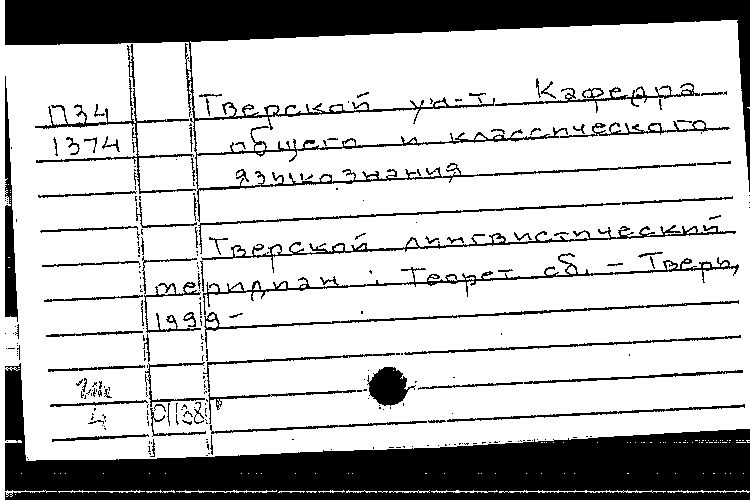 П34 Тверской ун-т. Кафедра
1374 общего и классического
языкознания
Тверской лингвистический
меридиан : Теорет. сб. – Тверь,
1999 –
4 01138